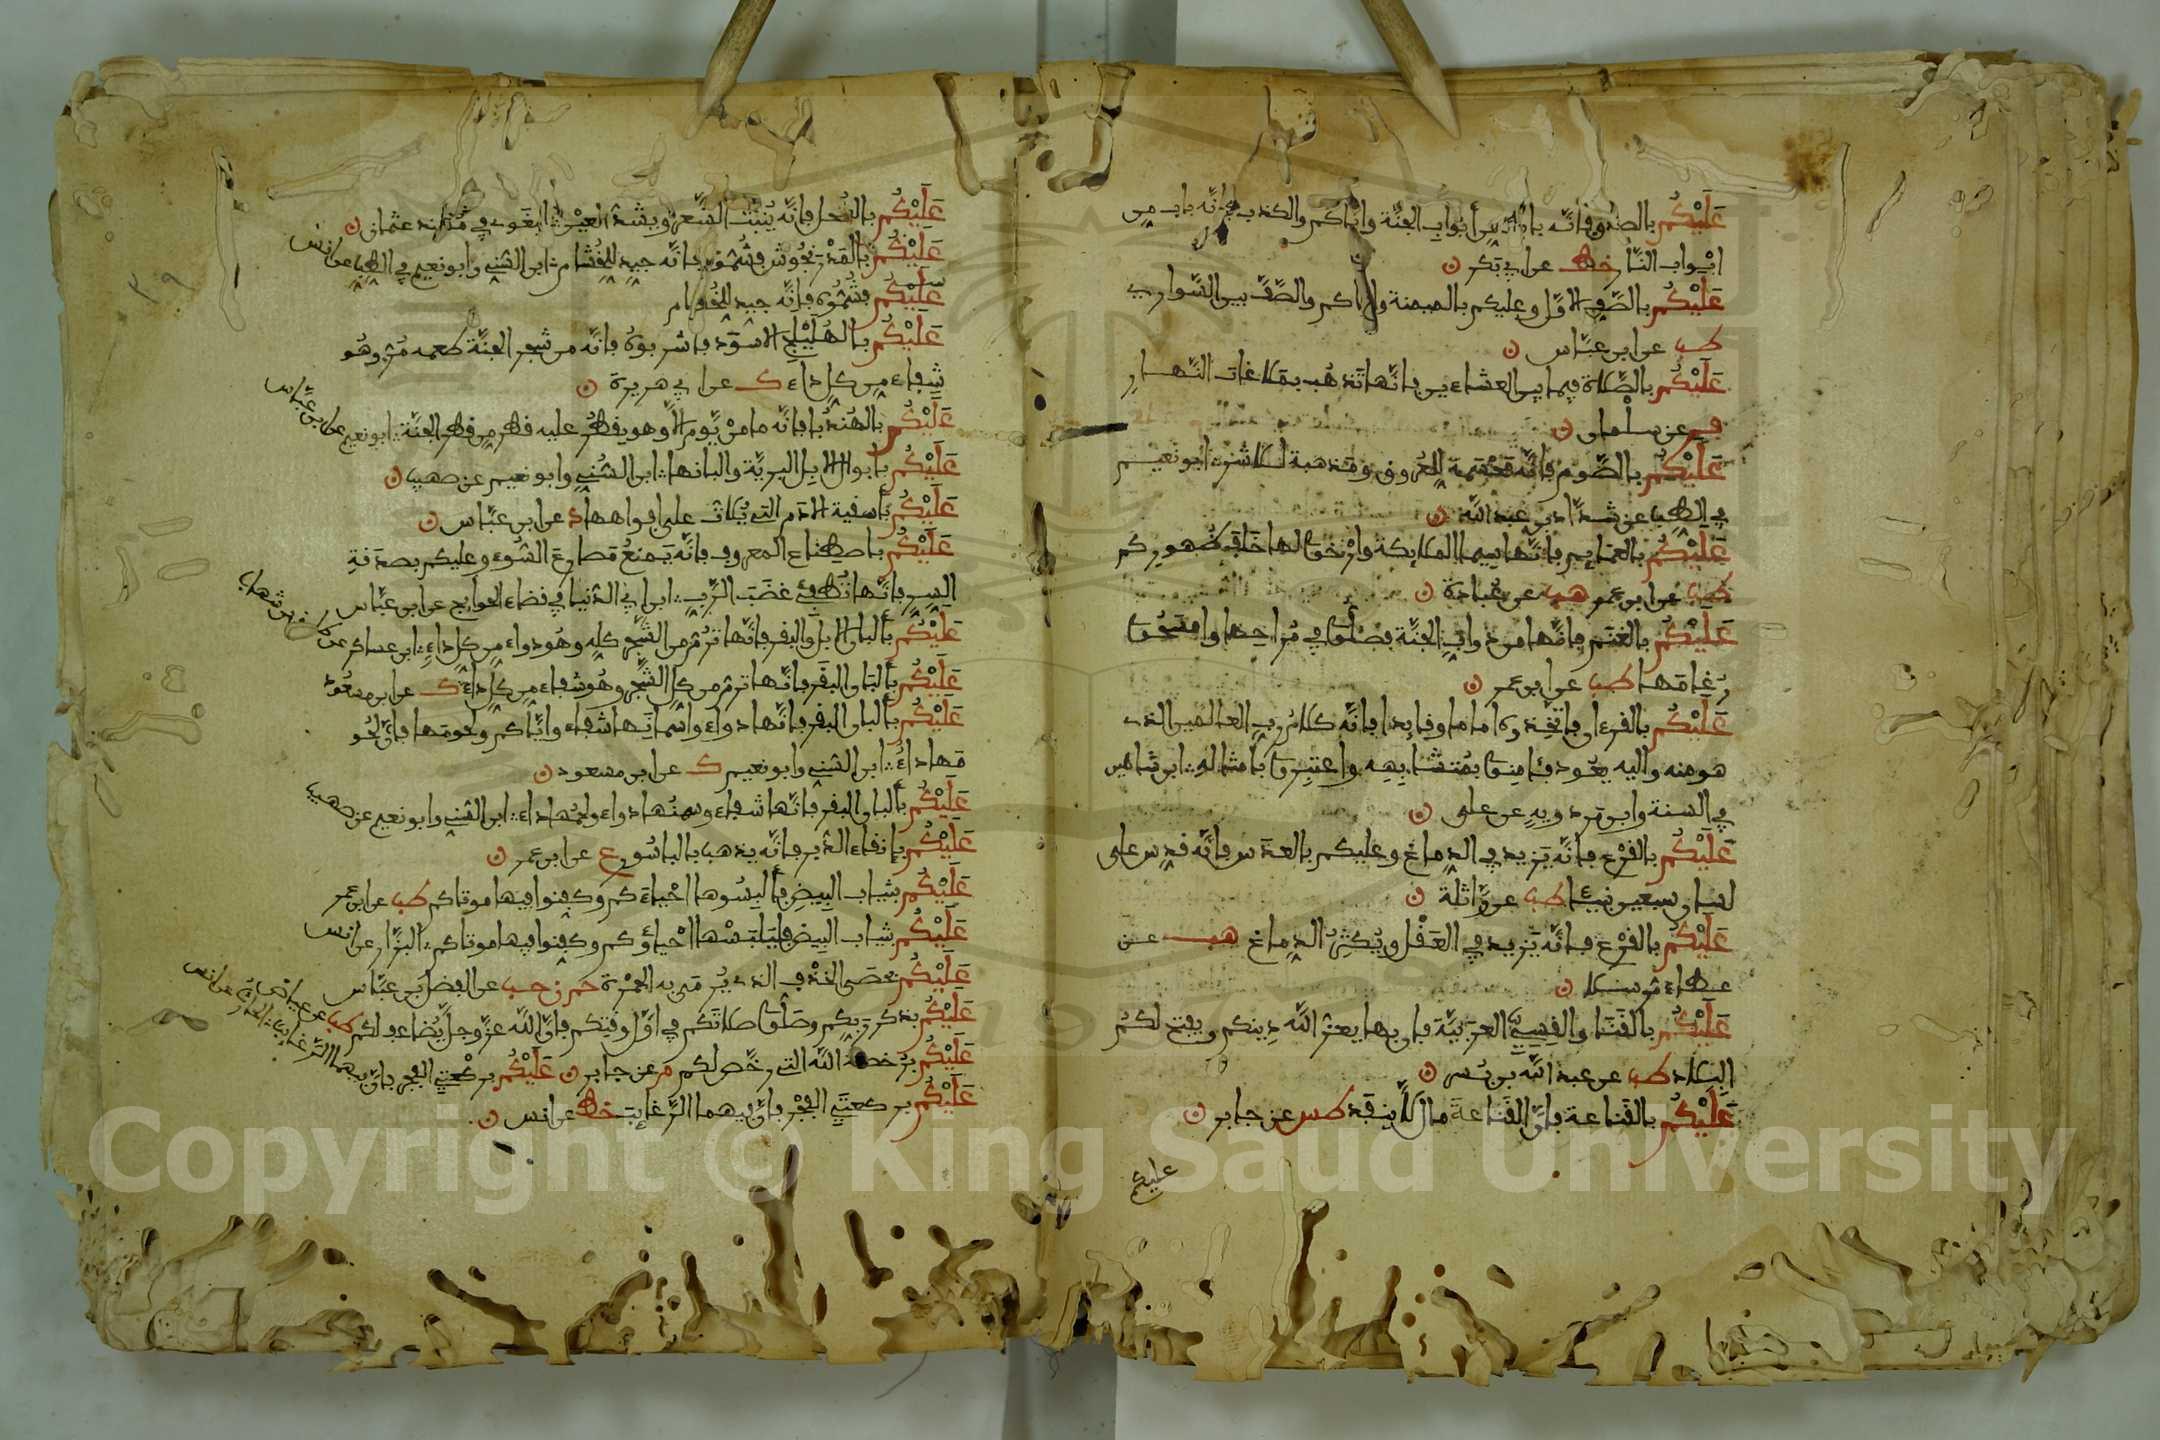 عَلَيْكُم بالصدق فانّه باب من أبوابِ الجنّة وايّاكم والكذب فانّه باب من
ابْواب النّار خط عن ابي بَكر ن
عَلَيْكُم بالصَّفِ الاوّل وعليكم بالميمنة وايّاكم والصّفّ بين السّواري
طب عن ابن عبّاس ن
عَلَيْكُم بالصَّلاة فيما بين العشاءين فانّها تَذهَب بمَلاغات النّهار
فر عن سلْمان ن
عَلَيْكُم بالصَّوم فانّه مَحْسَمة للعُروق ومَذهبة للاشر ؛ ابو نعيم
في الطب عن شدّاد بن عبد اللّه ن
عَلَيْكُم بالعمايم فانّها سِيما الملايكة وارْخوا لها خلف ظهوركم
طب عن ابن عمر هب عن عُبادة ن
عَلَيْكُم بالغنَم فانّها من دوابِ الجنّة فصَلّوا في مُراحها وامسَحُوا
رُغامَها طب عن ابن عمر ن
عَلَيْكُم بالقرءان فاتّخِذوه اماما وقايدا فانّه كلامُ ربِ العالَمين الذي
هو منه واليه يعُود فئامِنوا بمُتشابِهِه واعتبِروا بامثاله ؛ ابن شاهين
في السنة وابن مَردويهِ عن علي ن
عَلَيْكُم بالقرْع فانّه يَزيد في الدِماغ وعليكم بالعدَس فانّه قدِس على
لسان سبعين نبيئا طب عن وَاثلة ن
عَلَيْكُم بالقرْع فانّه يَزيد في العَقْل ويُكثِرُ الدِماغ هب عن
عطاء مُرسلا ن
عَلَيْكُم بالقَنا والقِسِيِّ العرَبيّة فان بها يعزّ اللّه دِينكم ويفتح لكمُ
البلاد طب عن عبد اللّه بن بُسر ن
عَلَيْكُم بالقَناعة فانّ القَناعةَ مال لّا ينفَد طس عن جابر ن
عليكم
عَلَيْكُم بالكُحل فانّه يُنبِتُ الشّعر ويشدّ العيْن ؛ البغَوي في مُسند عثمان ن
عَلَيْكُم بالمَرْزَنجُوش فشُمّوه فانّه جيِد للخُشام ؛ ابن السُني وابو نعيم في الطِب عن انس
عَلَيْكُم فشُمّوه فانّه جيد للخُشام
عَلَيْكُم بالهَليْلج الاسوَد فاشربوهُ فانّه من شجر الجنّة طعمه مُرّ وهُو
شِفاء مِن كلِ داء ك عن ابي هريرة ن
عَلَيْكُم بالهُندُبا فانّه ما مِن يّوم الّا وهو يقطُر عليه قطْر مِن قطر الجنّة ؛ ابو نعيم عن ابن عبّاس
عَلَيْكُم بأبوال الابِل البريّة والبانها ؛ ابن السُني وابو نعيم عن صهيب ن
عَلَيْكُم بأسقية الادَم التي يُلاث على افواهها د عن ابن عبّاس ن
عَلَيْكُم باصطناع المعروف فانّه يَمنعُ مَصارعَ السُوء وعليكم بصدَقةِ
السِر فانّها تُطفئ غضَبَ الرّبِ ؛ ابن ابي الدّنيا في قضاء الحوايج عن ابن عبّاس
عَلَيْكُم بألبان الابل والبقر فانّها ترُمّ من الشّجر كلِه وهُو دواء مِن كلِ داءٍ ؛ ابن عساكر عن طارق بن شهاب
عَلَيْكُم بألبان البقَر فانّها ترمّ من كلِ الشّجر وهُو شفاء مِن كلِ داء ك عن ابن مسعُود
عَلَيْكُم بألبان البقر فانّها دواء واسمانَها شفاء وايّاكم ولحومَها فانّ لحُو
مَها داءٌ ؛ ابن السُني وابو نعيم ك عن ابن مسعود ن
عَلَيْكُم بألبان البقر فانّها شفاء وسمنُها دواء ولحمُها داء ؛ ابن السُني وابو نعيم عن صهيب
عَلَيْكُم بإنقاء الدّبر فانّه يذهب بالباسُور ع عن ابن عمر ن
عَلَيْكُم بثياب البِيضِ فألبِسُوها احْياءَكم وكفِنوا فيها موتاكم طب عن ابن عمر
عَلَيْكُم بثياب البِيض فليَلبَسْها احْياؤكم وكفِنوا فيها موتاكم ؛ البزّار عن انس
عَلَيْكُم بحَصَى الخذْف الذي يُرمَى به الجَمْرة حم ن حب عن الفضل بن عبّاس
عَلَيْكُم بذكر رَبِكم وصَلّوا صلاتَكم في اوّل وقتِكم فانّ اللّه عزّ وجلّ يُّضاعِف لكم طب عن عياض
عَلَيْكُم برُخصة اللّه التي رخّص لكم م عن جابر ن عَلَيْكُم بركعتَيِ الفجر فانّ فيهما الرّغايب ؛ الحارث عن انس
عَلَيْكُم بركعتَيِ الفجْر فانّ فيهما الرّغايبَ خط عن انس ن